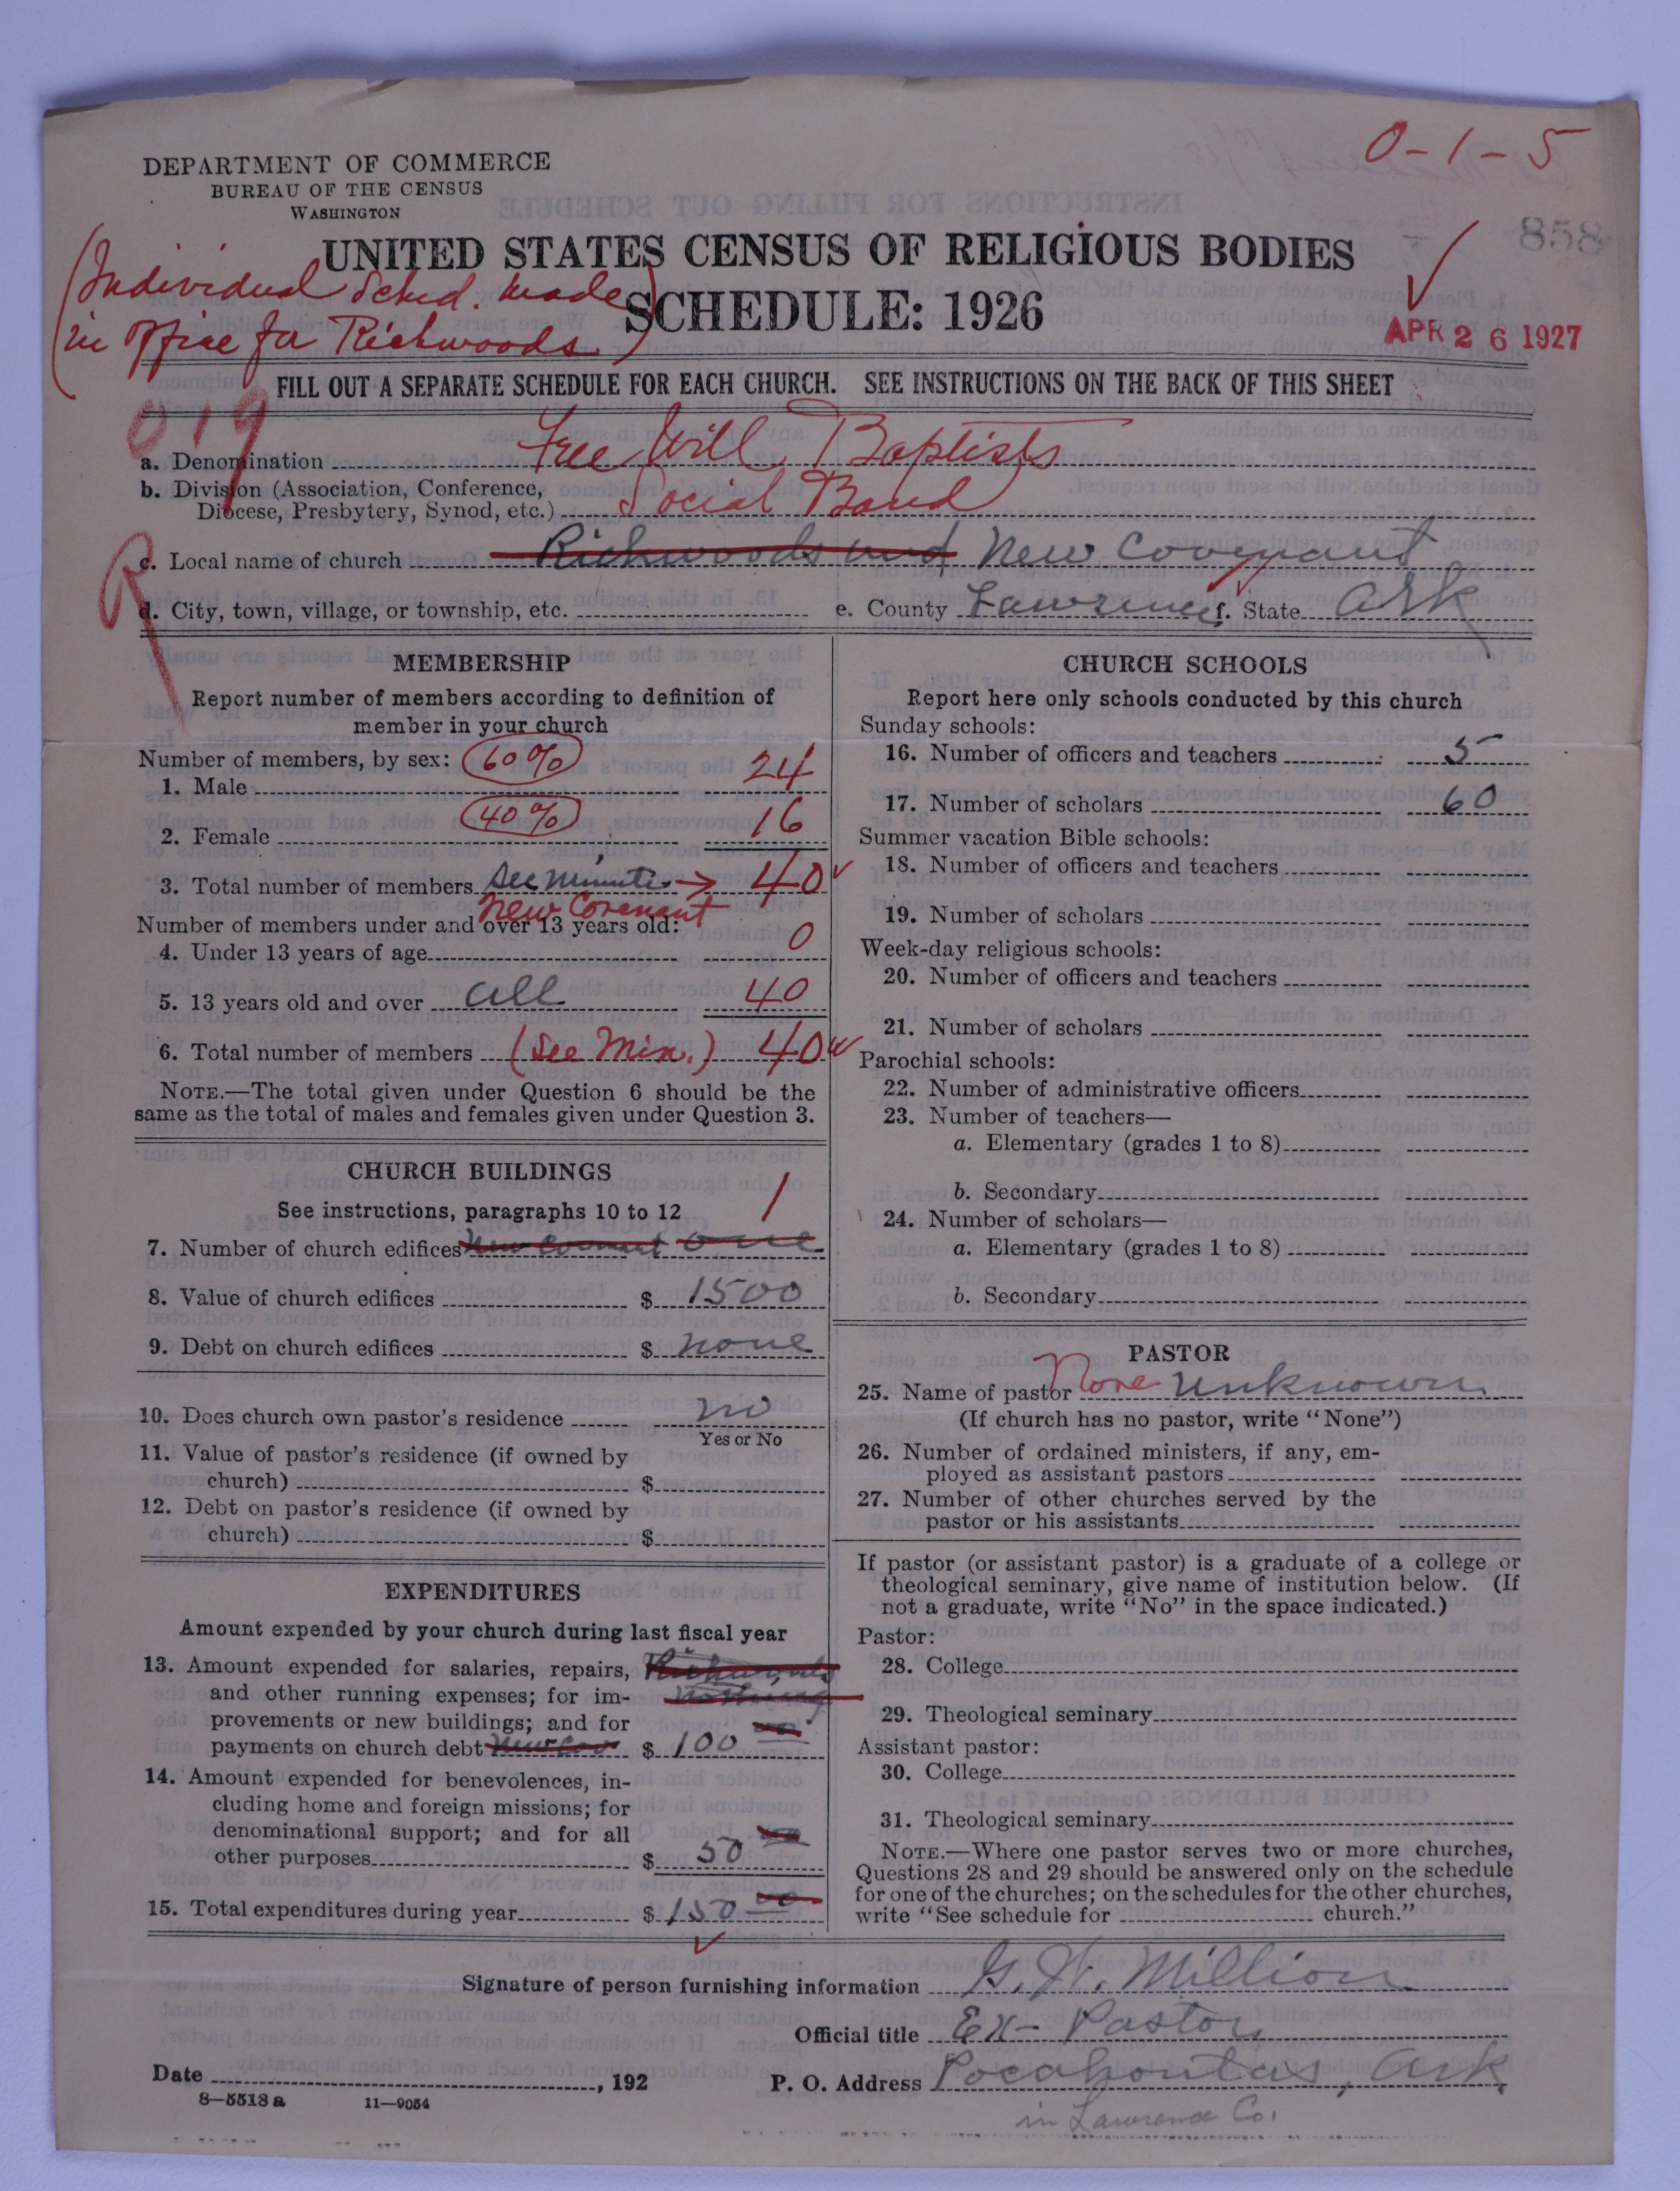 0-1-5
DEPARTMENT OF COMMERCE
BUREAU OF THE CENSUS
WASHINGTON
858
UNITED STATES CENSUS OF RELIGIOUS BODIES
(Individual Sched. made
in office for Richwoods.)
SCHEDULE: 1926
APR 26 1927
FILL OUT A SEPARATE SCHEDULE FOR EACH CHURCH. SEE INSTRUCTIONS ON THE BACK OF THIS SHEET
019
a. Denomination Free Will Baptists
b. Division (Association, Conference,
Diocese, Presbytery, Synod, etc.) Social Band
R
c. Local name of church Richwoods and New Covenant
d. City, town, village, or township, etc. e. County Lawrence f. State Ark
MEMBERSHIP
Report number of members according to definition of
member in your church
Number of members, by sex: 60%
1. Male 24
40%
2. Female 16
3. Total number of members See minutes → 40
New Covenant
Number of members under and over 13 years old:
4. Under 13 years of age 0
5. 13 years old and over all 40
6. Total number of members (See Min.) 40
NOTE.—The total given under Question 6 should be the
same as the total of males and females given under Question 3.
CHURCH BUILDINGS
See instructions, paragraphs 10 to 12 1
7. Number of church edifices New Covenant one
8. Value of church edifices $ 1500
9. Debt on church edifices $ none
10. Does church own pastor's residence no
Yes or No
11. Value of pastor's residence (if owned by
church) $
12. Debt on pastor's residence (if owned by
church) $
EXPENDITURES
Amount expended by your church during last fiscal year
13. Amount expended for salaries, repairs, Richwoods
and other running expenses; for im- nothing
provements or new buildings; and for
payments on church debt New Cov $ 100 00
14. Amount expended for benevolences, in-
cluding home and foreign missions; for
denominational support; and for all
other purposes $ 50 00
15. Total expenditures during year $ 150 00
CHURCH SCHOOLS
Report here only schools conducted by this church
Sunday schools:
16. Number of officers and teachers 5
17. Number of scholars 60
Summer vacation Bible schools:
18. Number of officers and teachers
19. Number of scholars
Week-day religious schools:
20. Number of officers and teachers
21. Number of scholars
Parochial schools:
22. Number of administrative officers
23. Number of teachers—
a. Elementary (grades 1 to 8)
b. Secondary
24. Number of scholars—
a. Elementary (grades 1 to 8)
b. Secondary
PASTOR
25. Name of pastor None Unknown
(If church has no pastor, write "None")
26. Number of ordained ministers, if any, em-
ployed as assistant pastors
27. Number of other churches served by the
pastor or his assistants
If pastor (or assistant pastor) is a graduate of a college or
theological seminary, give name of institution below. (If
not a graduate, write "No" in the space indicated.)
Pastor:
28. College
29. Theological seminary
Assistant pastor:
30. College
31. Theological seminary
NOTE.—Where one pastor serves two or more churches,
Questions 28 and 29 should be answered only on the schedule
for one of the churches; on the schedules for the other churches,
write "See schedule for church."
Signature of person furnishing information G. W. Million
Official title Ex-Pastor
Date , 192 P. O. Address Pocahontas, Ark
8—5513 a 11—9054
in Lawrence Co.